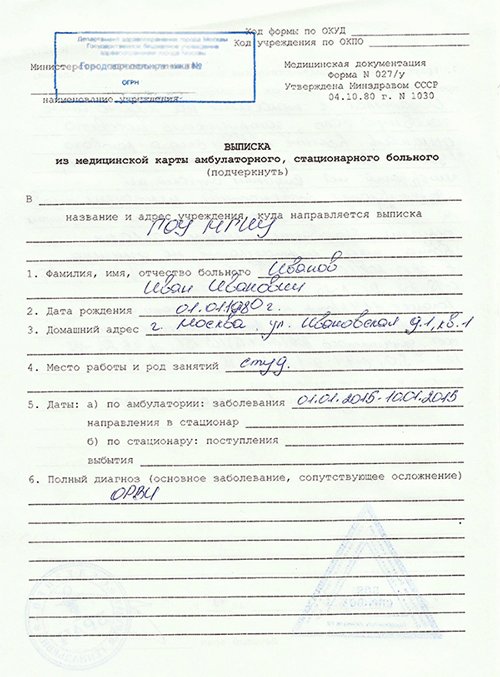 Код формы по ОКУД
Код учреждения по ОКПО
Департамент здравоохранения города Москвы
Государственное бюджетное учреждение
здравоохранения города Москвы
Министерство
ОГРН
наименование учреждения
Медицинская документация
Форма N 027/у
Утверждена Минздравом СССР
04.10.80 г. N 1030
ВЫПИСКА
из медицинской карты амбулаторного, стационарного больного
(подчеркнуть)
В
название и адрес учреждения, куда направляется выписка
ГОУ МГИУ
1. Фамилия, имя, отчество больного Иванов
Иван Иванович
2. Дата рождения 01.01.1980г.
3. Домашний адрес г. Москва, ул. Ивановская д.1, кв.1
4. Место работы и род занятий студ.
5. Даты: а) по амбулатории: заболевания 01.01.2015-10.01.2015
направления в стационар
б) по стационару: поступления
выбытия
6. Полный диагноз (основное заболевание, сопутствующее осложнение)
ОРВИ